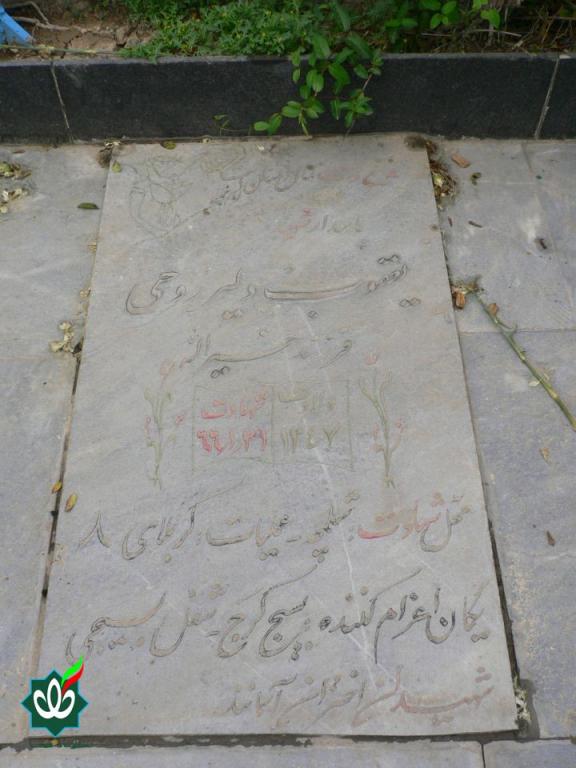 پاسدار شهید
یعقوب دلیر روحی
فرزند خیراله
ولادت شهادت
۱۳۴۷ ۶۶/۱/۳۱
محل شهادت: شلمچه - عملیات: کربلای ۸
یگان اعزام کننده: بسیج کرج - شغل: بسیجی
شهیدان اختران آسمانند